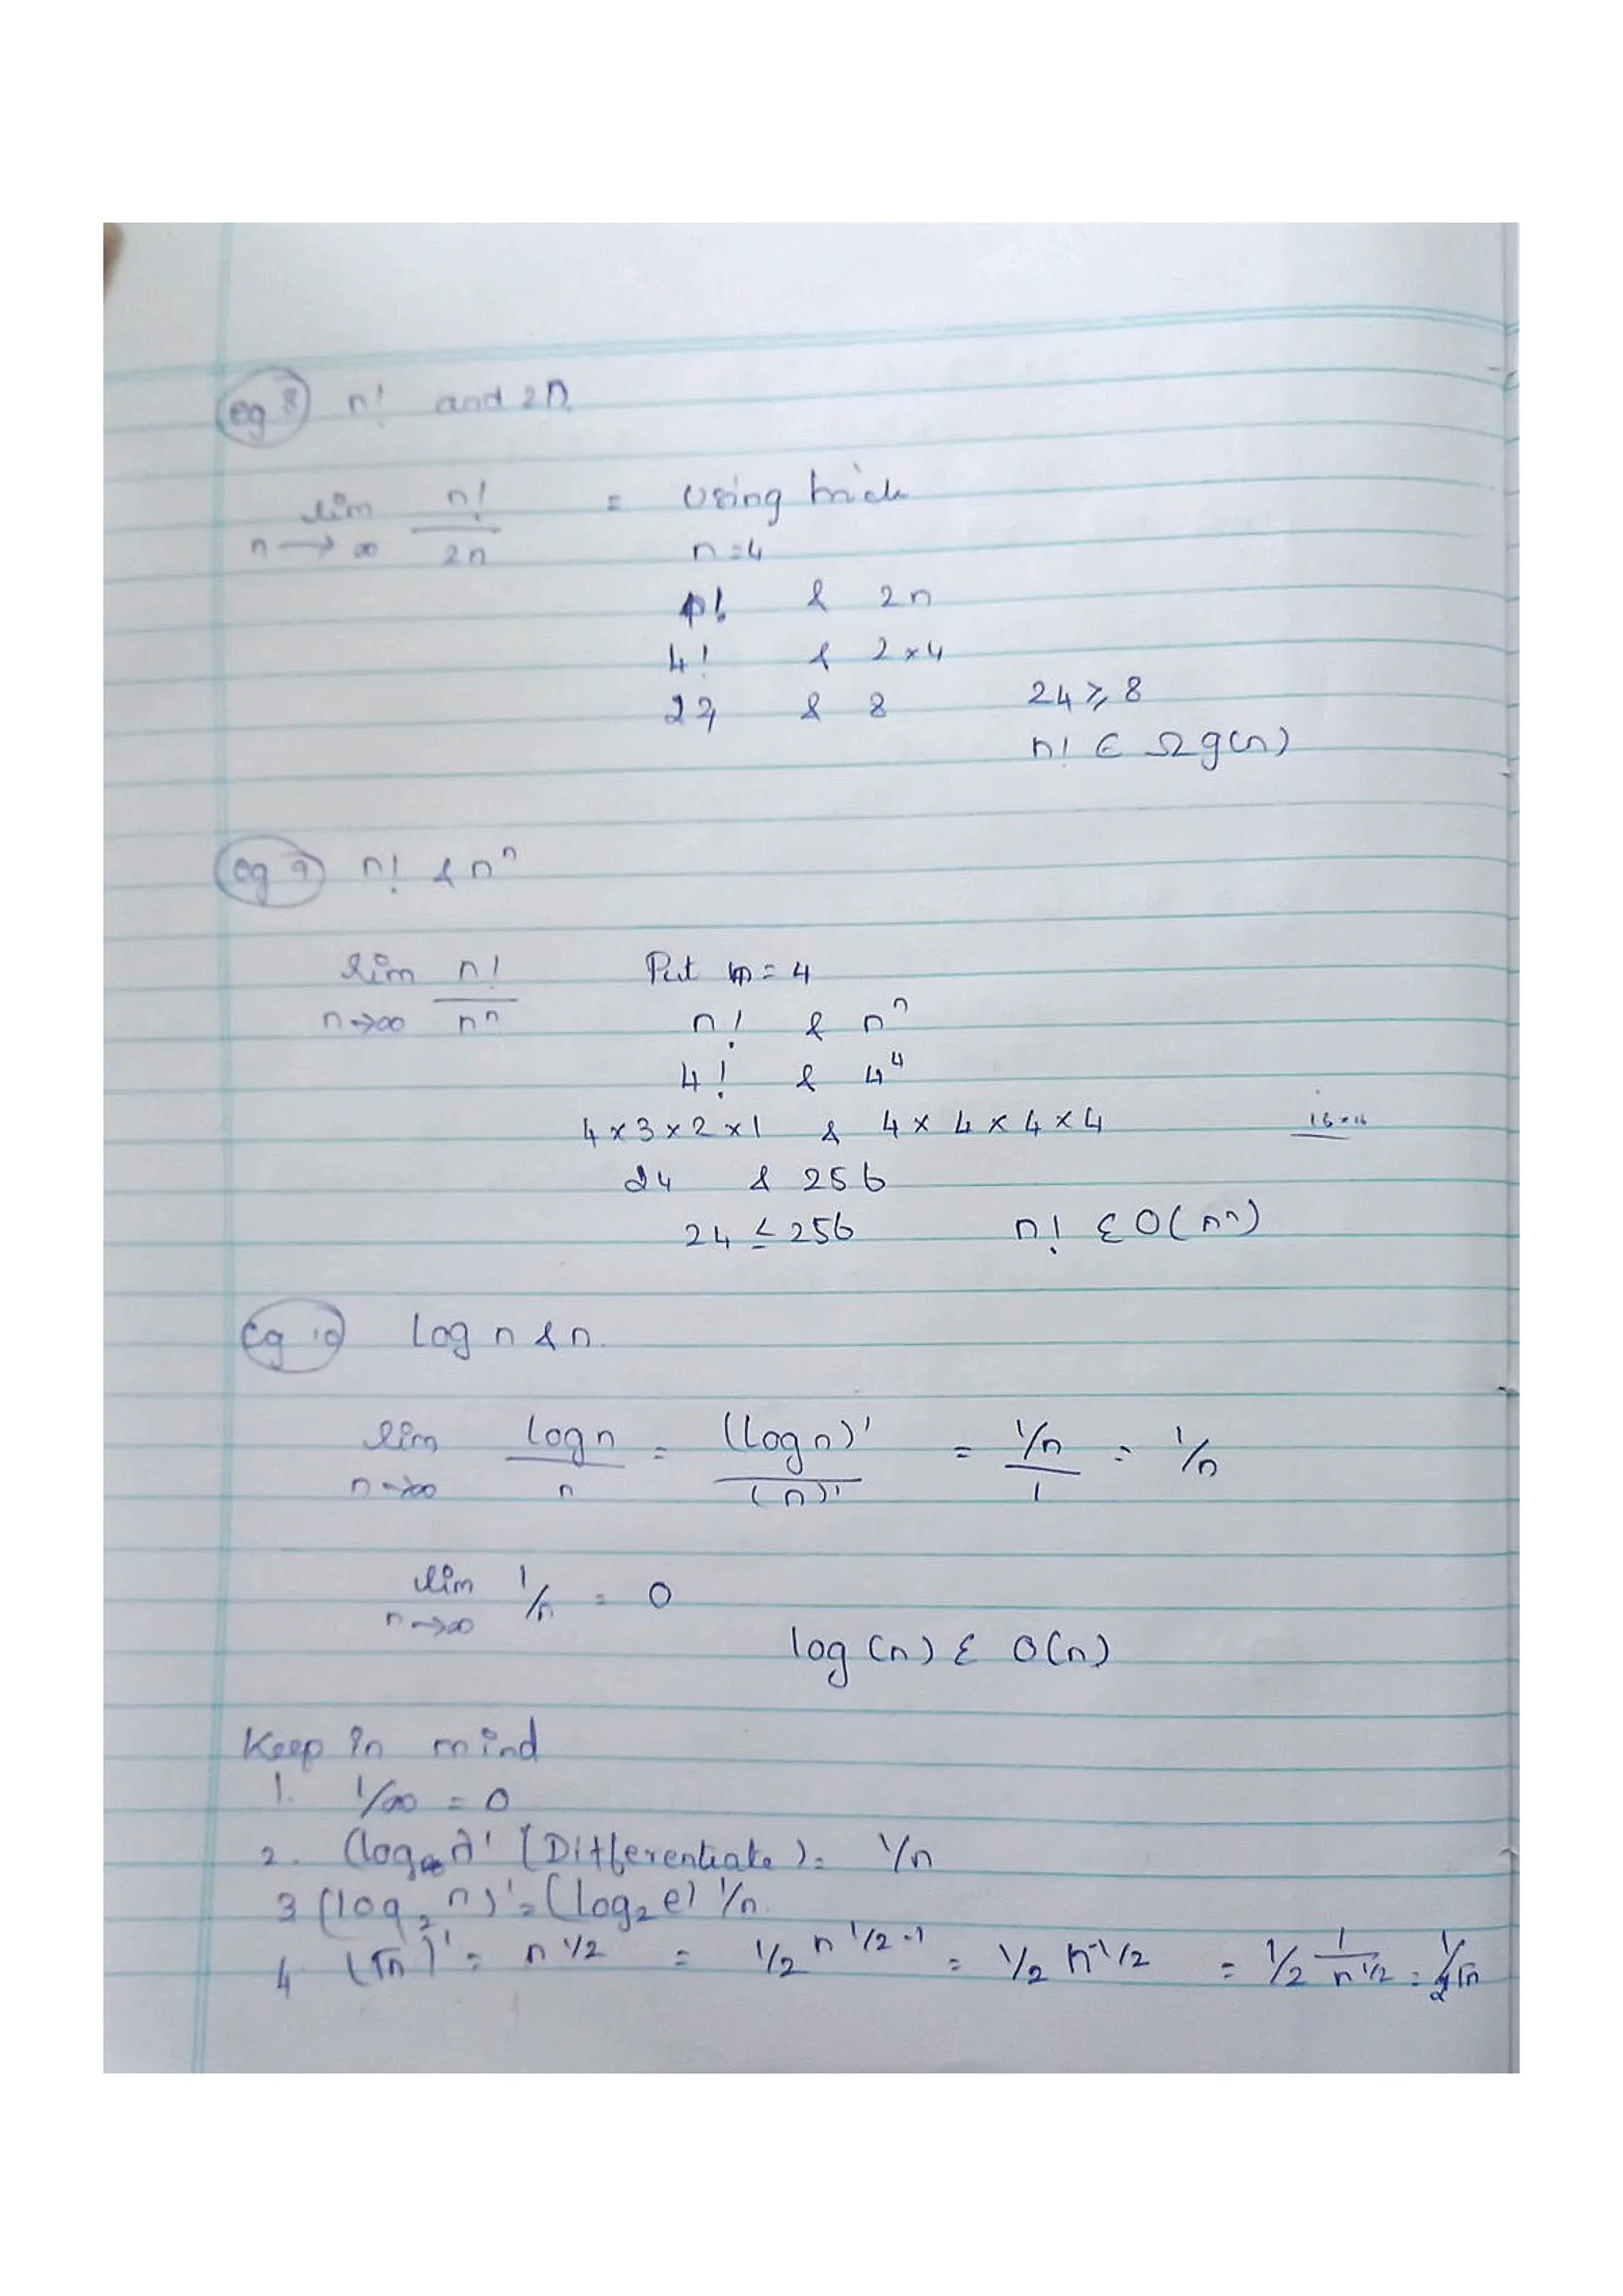 eg 8 n! and 2n
lim n! = Using trick
n→∞ 2n n=4
n! & 2n
4! & 2×4
24 & 8 24 ≥ 8
n! ∈ Ω g(n)
eg 9 n! & nⁿ
lim n! Put n = 4
n→∞ nⁿ n! & nⁿ
4! & 4⁴
4×3×2×1 & 4×4×4×4 16×16
24 & 256
24 ≤ 256 n! ε O(nⁿ)
Eg 10 Log n & n.
lim log n = (Log n)' = 1/n = 1/n
n→∞ n (n)' 1
lim 1/n = 0
n→∞
log(n) ε O(n)
Keep in mind
1. 1/∞ = 0
2. (log n)' [Differentiate) = 1/n
3 (log₂ n)' = (log₂ e) 1/n.
4. (√n)' = n 1/2 = 1/2 n 1/2 -1 = 1/2 n -1/2 = 1/2 1/n 1/2 = 1/2√n